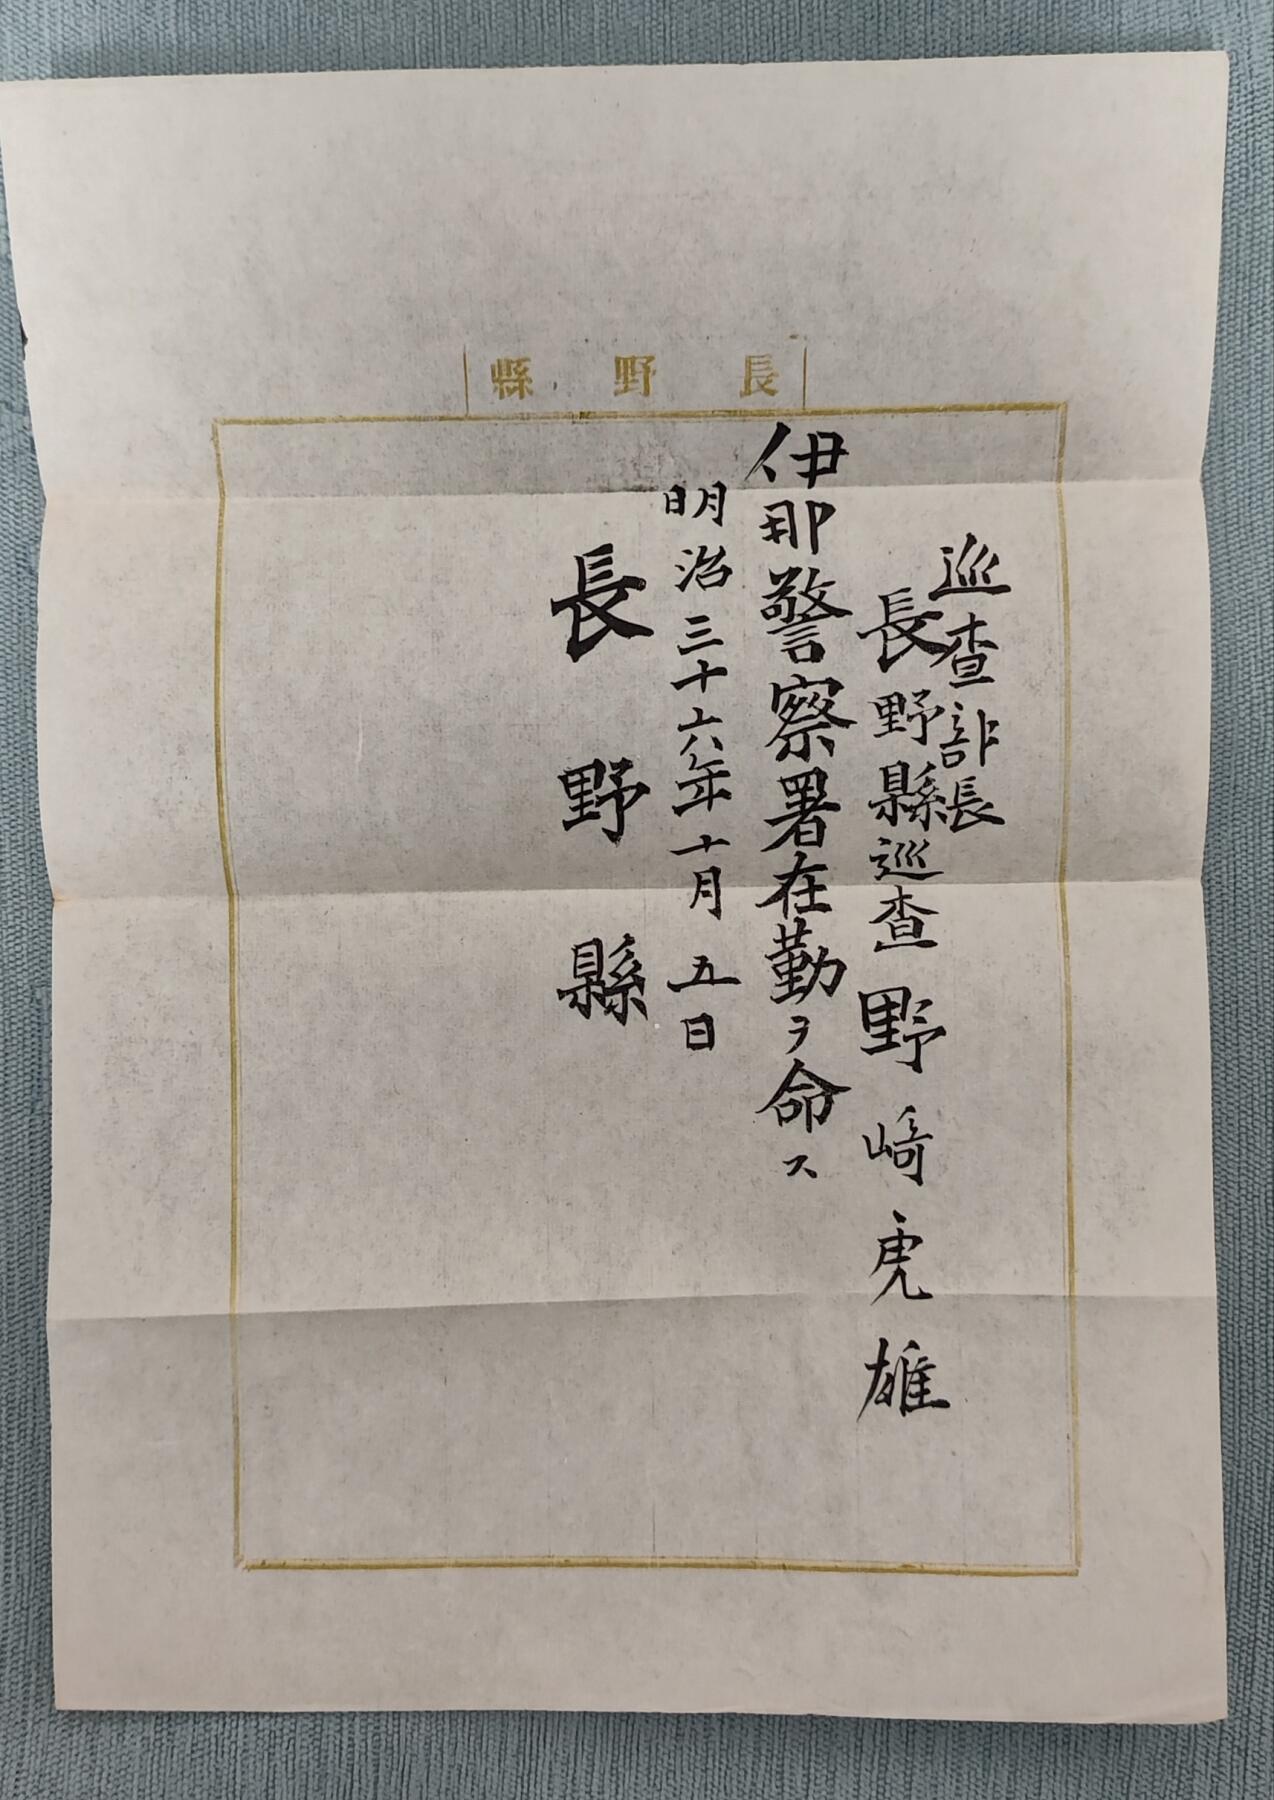 縣野長
巡査部長
長野縣巡査野﨑虎雄
伊那警察署在勤ヲ命ス
明治三十六年十月五日
長野縣